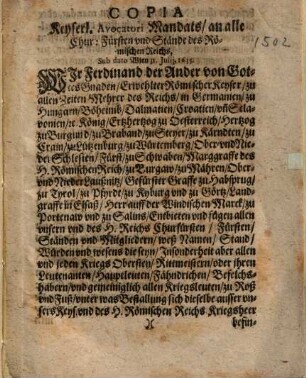 COPIA
Keyserl. Avocatori Mandats/ an alle
Chur: Fürsten vnd Stände des Rö-
mischen Reichs,
Sub dato Wien Julij, 1635.
1502
WIr Ferdinand der Ander von Got-
tes Gnaden/ Erwehlter Römischer Keyser/ zu
allen Zeiten Mehrer des Reichs/ in Germanien/ zu
Hungarn/ Böheimb/ Dalmatien/ Croatien/ vñ Scla-
vonien/ ec. König/ Ertzhertzog zu Oesterreich/ Hertzog
zu Burgund/ zu Braband/ zu Steyer/ zu Kärndten/ zu
Crain/ zu Lützenburg/ zu Würtemberg/ Ober vnd Nie-
der Schlesien/ Fürst/ zu Schwaben/ Marggraffe des
H. Römischen Reich/ zu Burgaw/ zu Mähren/ Ober-
vnd Nieder Laußnitz/ Gefürster Graffe zu Habspurg/
zu Tyrol/ zu Pfyrdt/ zu Kyburg vnd zu Görtz/ Land-
graffe in Elsaß/ Herr auff der Windischen Marck/ zu
Portenaw vnd zu Salins/ Entbieten vnd fügen allen
vnsern vnd des H. Reichs Churfürsten / Fürsten/
Ständen vnd Mitgliedern/ weß Namen/ Stand/
Würden vnd wesens die seyn/ Insonderheit aber allen
vnd jeden Kriegs Obersten/ Ritmeistern/ oder ihren
Leutenanten/ Hauptleuten/ Fähndrichen/ Befelchs-
habern/ vnd gemeiniglich allen Kriegsleuten/ zu Roß
vnd Fuß/ vnter was Bestallung sich dieselbe ausser vn-
sers Keys. vnd des H. Römischen Reichs Kriegsheer
befin-